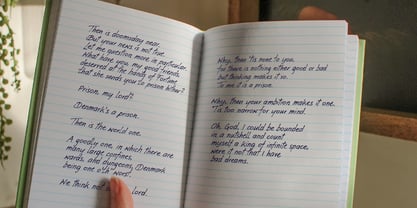 Then is doomsday near.
But your news is not true.
Let me question more in particular.
What have you, my good friends,
deserved at the hands of Fortune
that she sends you to prison hither?
Prison, my lord?
Denmark's a prison.
Then is the world one.
A goodly one, in which there are
many large confines,
wards, and dungeons, Denmark
being one o'th' worst.
We think not lord.
Why, then 'tis none to you,
for there is nothing either good or bad
but thinking makes it so.
To me it is a prison.
Why, then your ambition makes it one.
'Tis too narrow for your mind.
Oh, God, I could be bounded
in a nutshell and count
myself a king of infinite space,
were it not that I have
bad dreams.